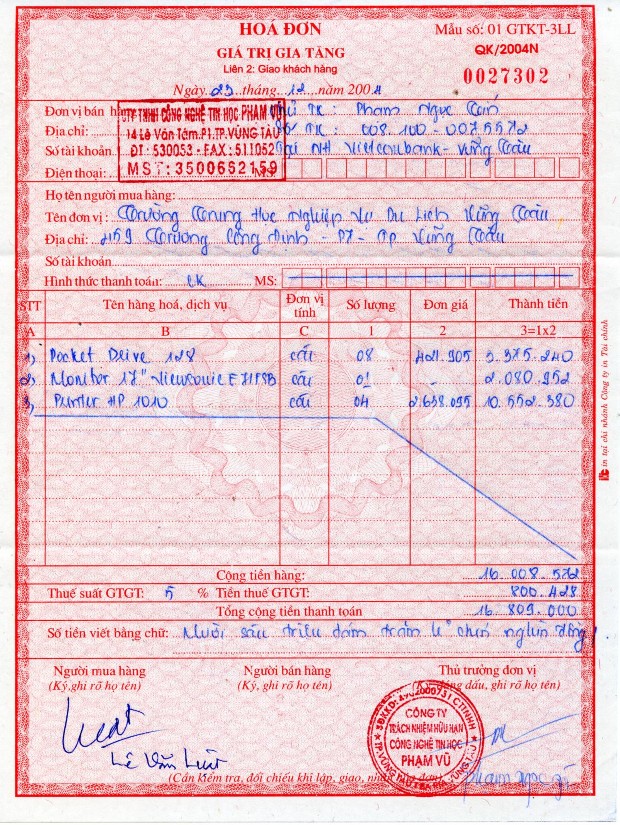 HOÁ ĐƠN
GIÁ TRỊ GIA TĂNG
Liên 2: Giao khách hàng
Mẫu số: 01 GTKT-3LL
QK/2004N
0027302
Ngày 29 tháng 12 năm 2004
Đơn vị bán hàng
CTY TNHH CÔNG NGHỆ TIN HỌC PHẠM VŨ
TK: Phạm Ngọc
Địa chỉ:
14 Lê Văn Tám.P1.TP.VŨNG TÀU
TK: 008.100-0075572
Số tài khoản
ĐT: 530053 - FAX: 511052
Tại NH Vietcombank - Vũng Tàu
Điện thoại:
MST: 3500652159
Họ tên người mua hàng:
Tên đơn vị: Trường Trung Học Nghiệp Vụ Du Lịch Vũng Tàu
Địa chỉ: 459 Trương Công Định - P7 - Tp Vũng Tàu
Số tài khoản
Hình thức thanh toán: CK MS:
STT Tên hàng hoá, dịch vụ Đơn vị tính Số lượng Đơn giá Thành tiền
A B C 1 2 3=1x2
1, Pocket Drive 128 cái 08 421.905 3.375.240
2, Monitor 17" Viewsonic E71FSB cái 01 - 2.080.952
3, Printer HP 1010 cái 04 2.638.095 10.552.380
Cộng tiền hàng: 16.008.572
Thuế suất GTGT: 5 % Tiền thuế GTGT: 800.428
Tổng cộng tiền thanh toán 16.809.000
Số tiền viết bằng chữ: Mười sáu triệu tám trăm lẻ chín nghìn đồng!
Người mua hàng
(Ký, ghi rõ họ tên)
Người bán hàng
(Ký, ghi rõ họ tên)
Thủ trưởng đơn vị
đóng dấu, ghi rõ họ tên)
CÔNG TY
TRÁCH NHIỆM HỮU HẠN
CÔNG NGHỆ TIN HỌC
PHẠM VŨ
Lê Văn
Phạm Ngọc
(Cần kiểm tra, đối chiếu khi lập, giao, nhận hoá đơn)
in tại chi nhánh Công ty in Tài chính